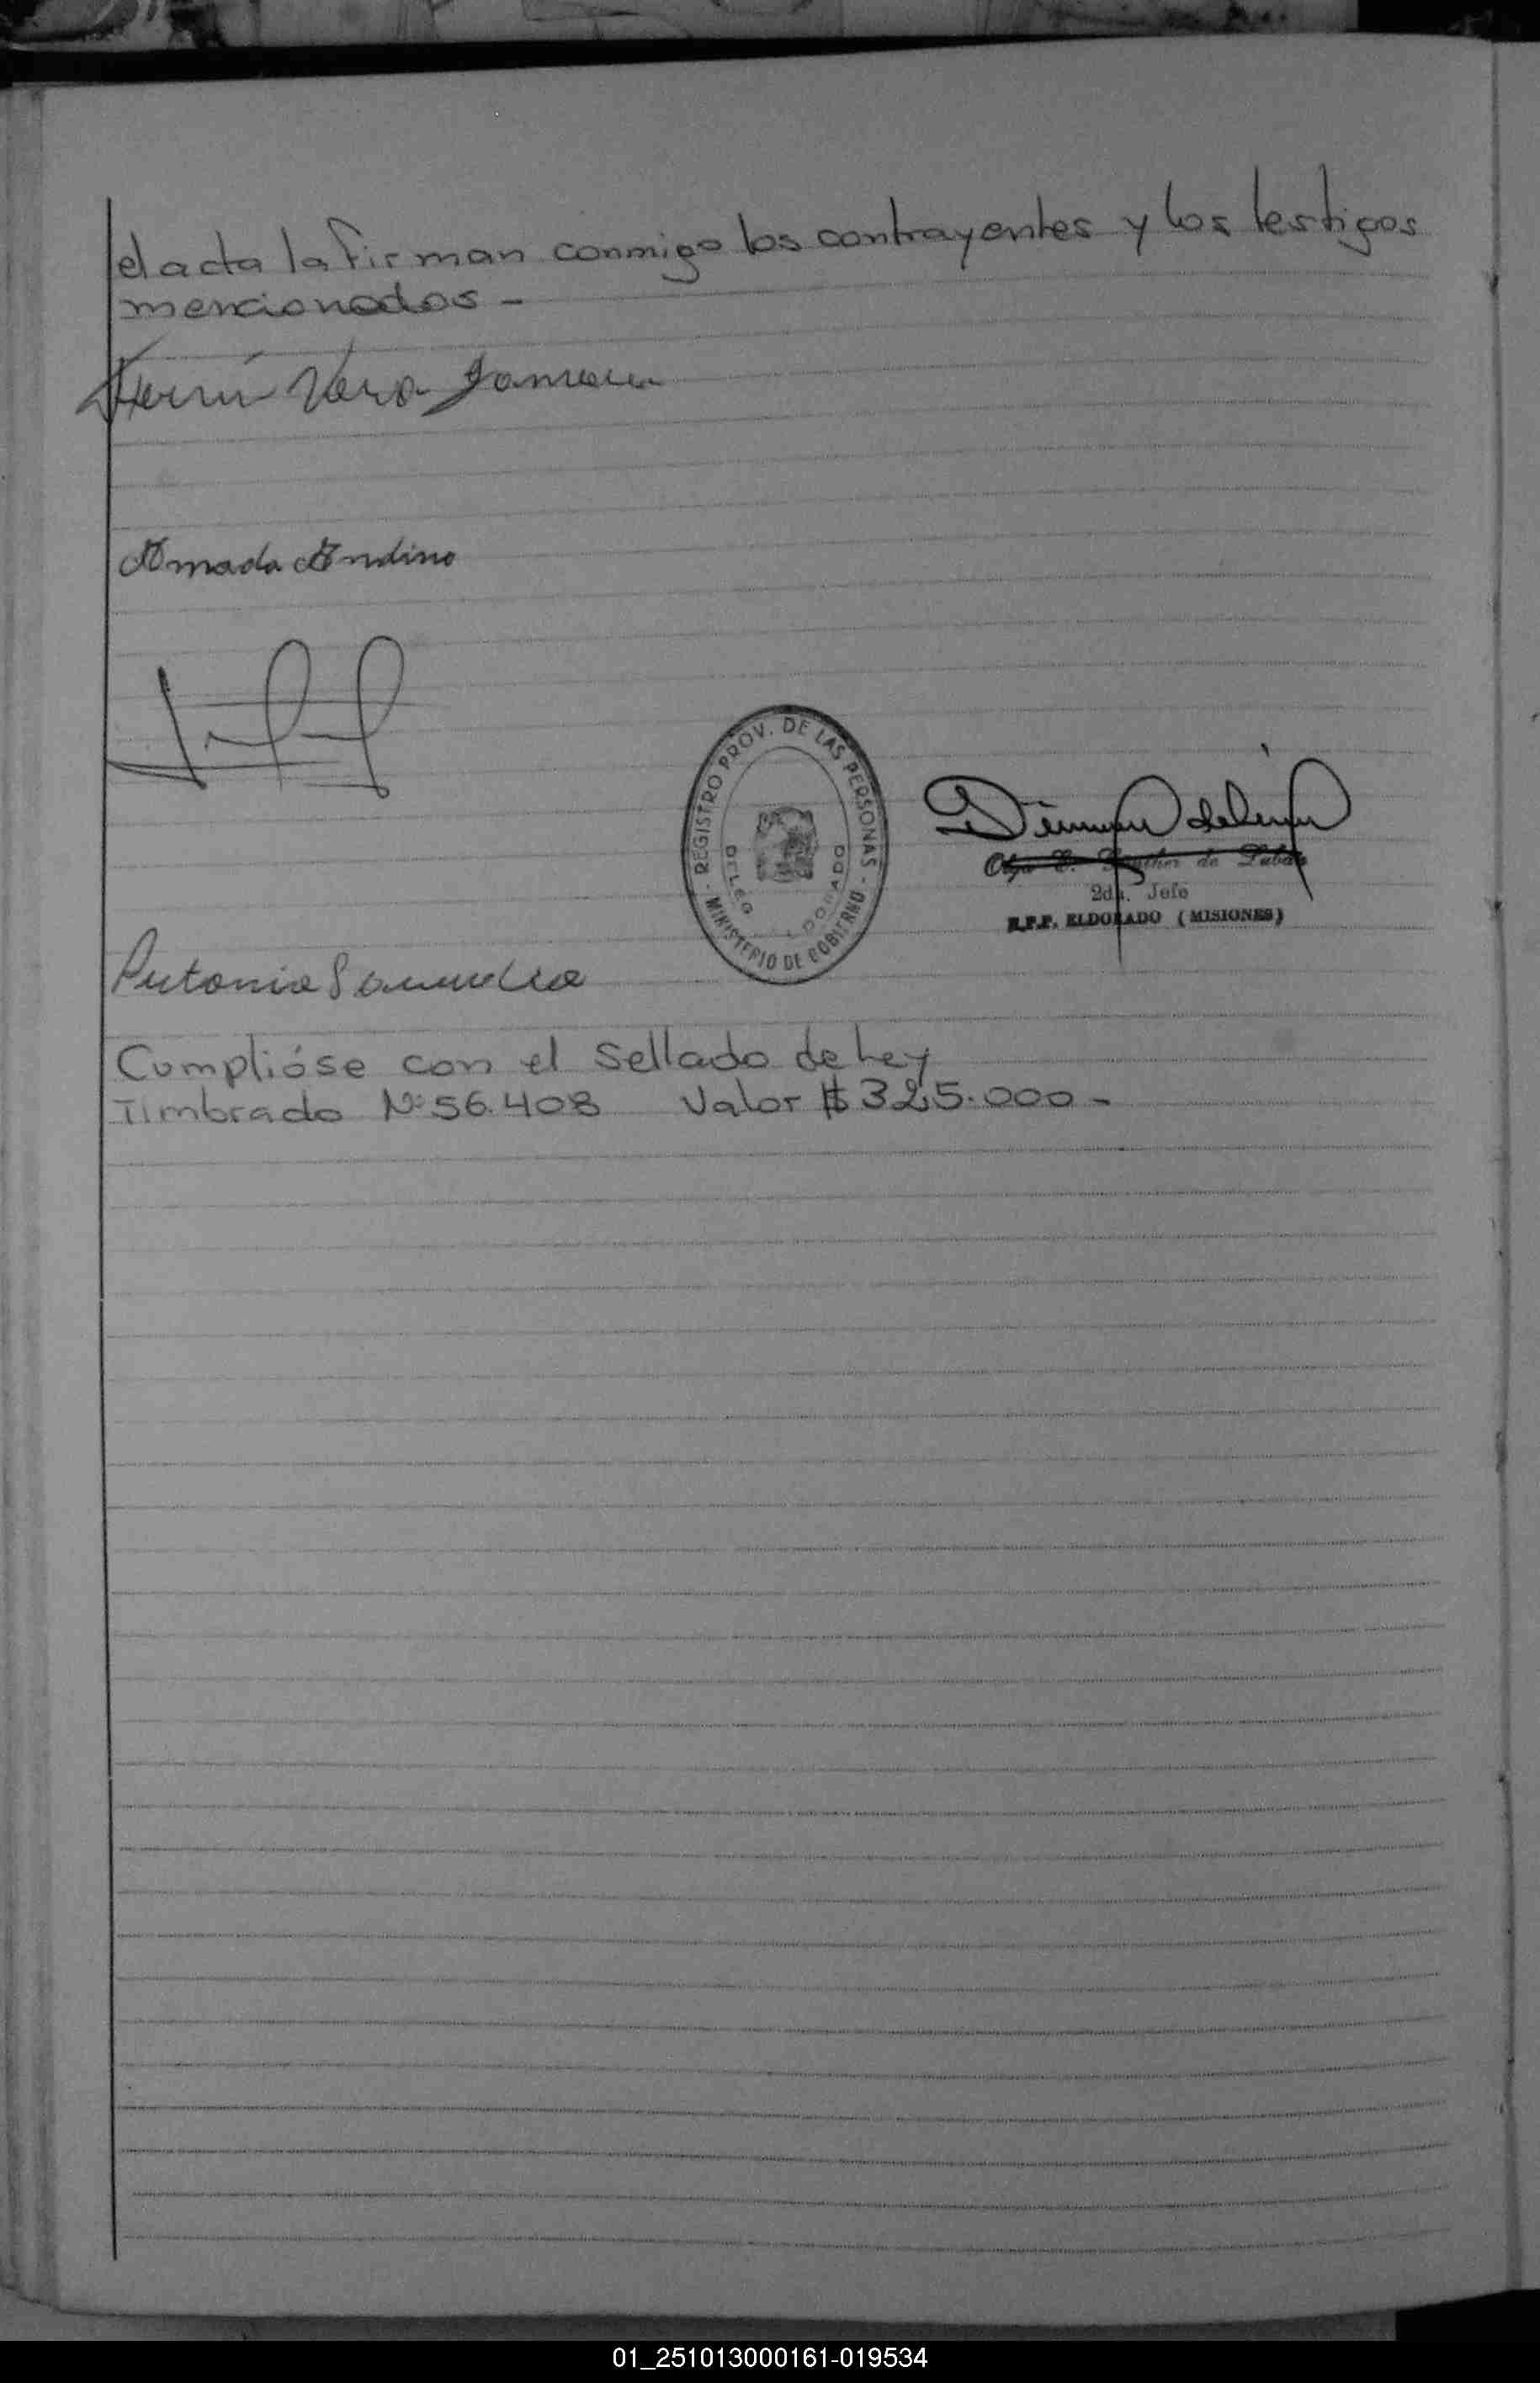 el acta la firman conmigo los contrayentes y los testigos
mencionados -
Vera
Amada Andino
REGISTRO PROV. DE LAS PERSONAS
MINISTERIO DE GOBIERNO
de
2da. Jefe
R.P.P. ELDORADO (MISIONES)
Antonia
Cumplióse con el Sellado de Ley
Timbrado Nº 56.408 Valor $ 325.000 -
01_251013000161-019534